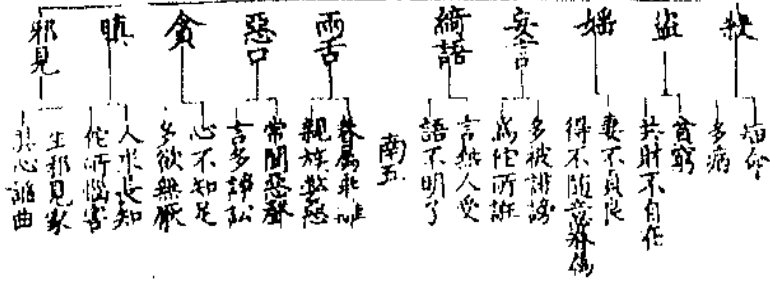 殺
短命
多病
盜
貧窮
共財不自在
婬
妻不貞良
得不隨意眷属
妄言
多被誹謗
爲佗所誑
綺語
言無人受
語不明了
南五
兩舌
眷属乖離
親族弊惡
惡口
常聞惡聲
言多諍訟
貪
心不知足
多欲無厭
瞋
人求長短
佗所惱害
邪見
生邪見家
其心諂曲